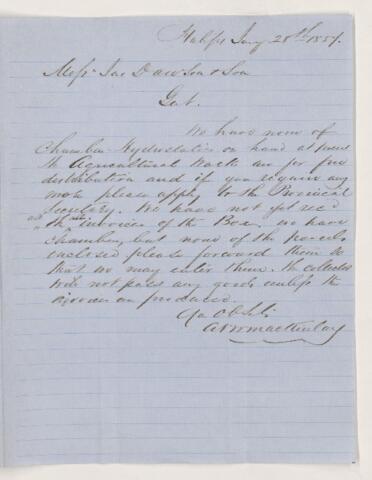 Halifx Jany 28th 1857.
Messrs Jas Dawson & Son
Gent.
We have none of
Chambers Hydrostatics on hand at present
the Agricultural tracts are for free
distribution and if you require any
more please apply to the Provincial
Secretary. We have not yet recd
the invoices of the Box. we have
Chambers, but none of the parcels
enclosed please forward them so
that we may enter them. the collector
will not pass any goods unless the
invoices are produced.
Yrs Obtly
A & W Mackinlay